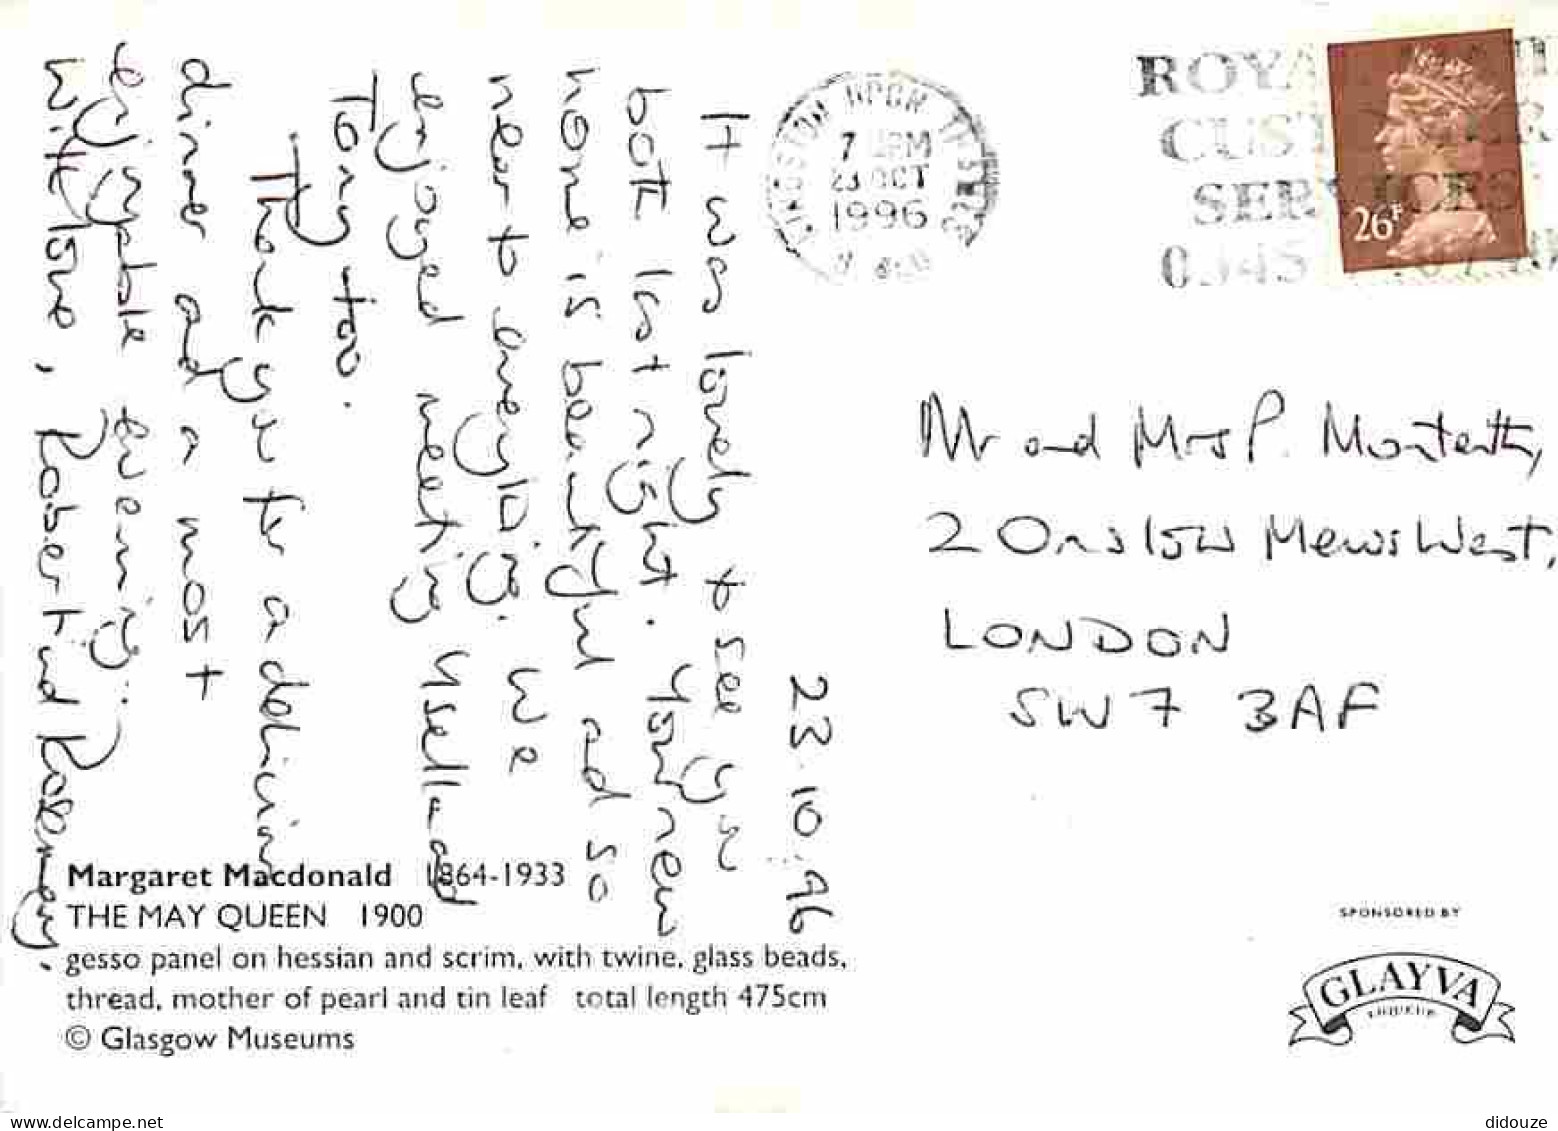 23.10.96
It was lovely to see you
both last night. Your new
home is beautiful and so
near to everything. We
enjoyed meeting and
Tony too.
Thank you for a delicious
dinner and a most
enjoyable evening.
With love, Robert and Rosemary.
Margaret Macdonald 1864-1933
THE MAY QUEEN 1900
gesso panel on hessian and scrim, with twine, glass beads,
thread, mother of pearl and tin leaf total length 475cm
© Glasgow Museums
KINGSTON UPON THAMES
7 PM
23 OCT
1996
ROYAL MAIL
CUSTOMER
SERVICES
0345
26P
Mr and Mrs P. Monteith,
2 Onslow Mews West,
LONDON
SW7 3AF
SPONSORED BY
GLAYVA
LIQUEUR
didouze